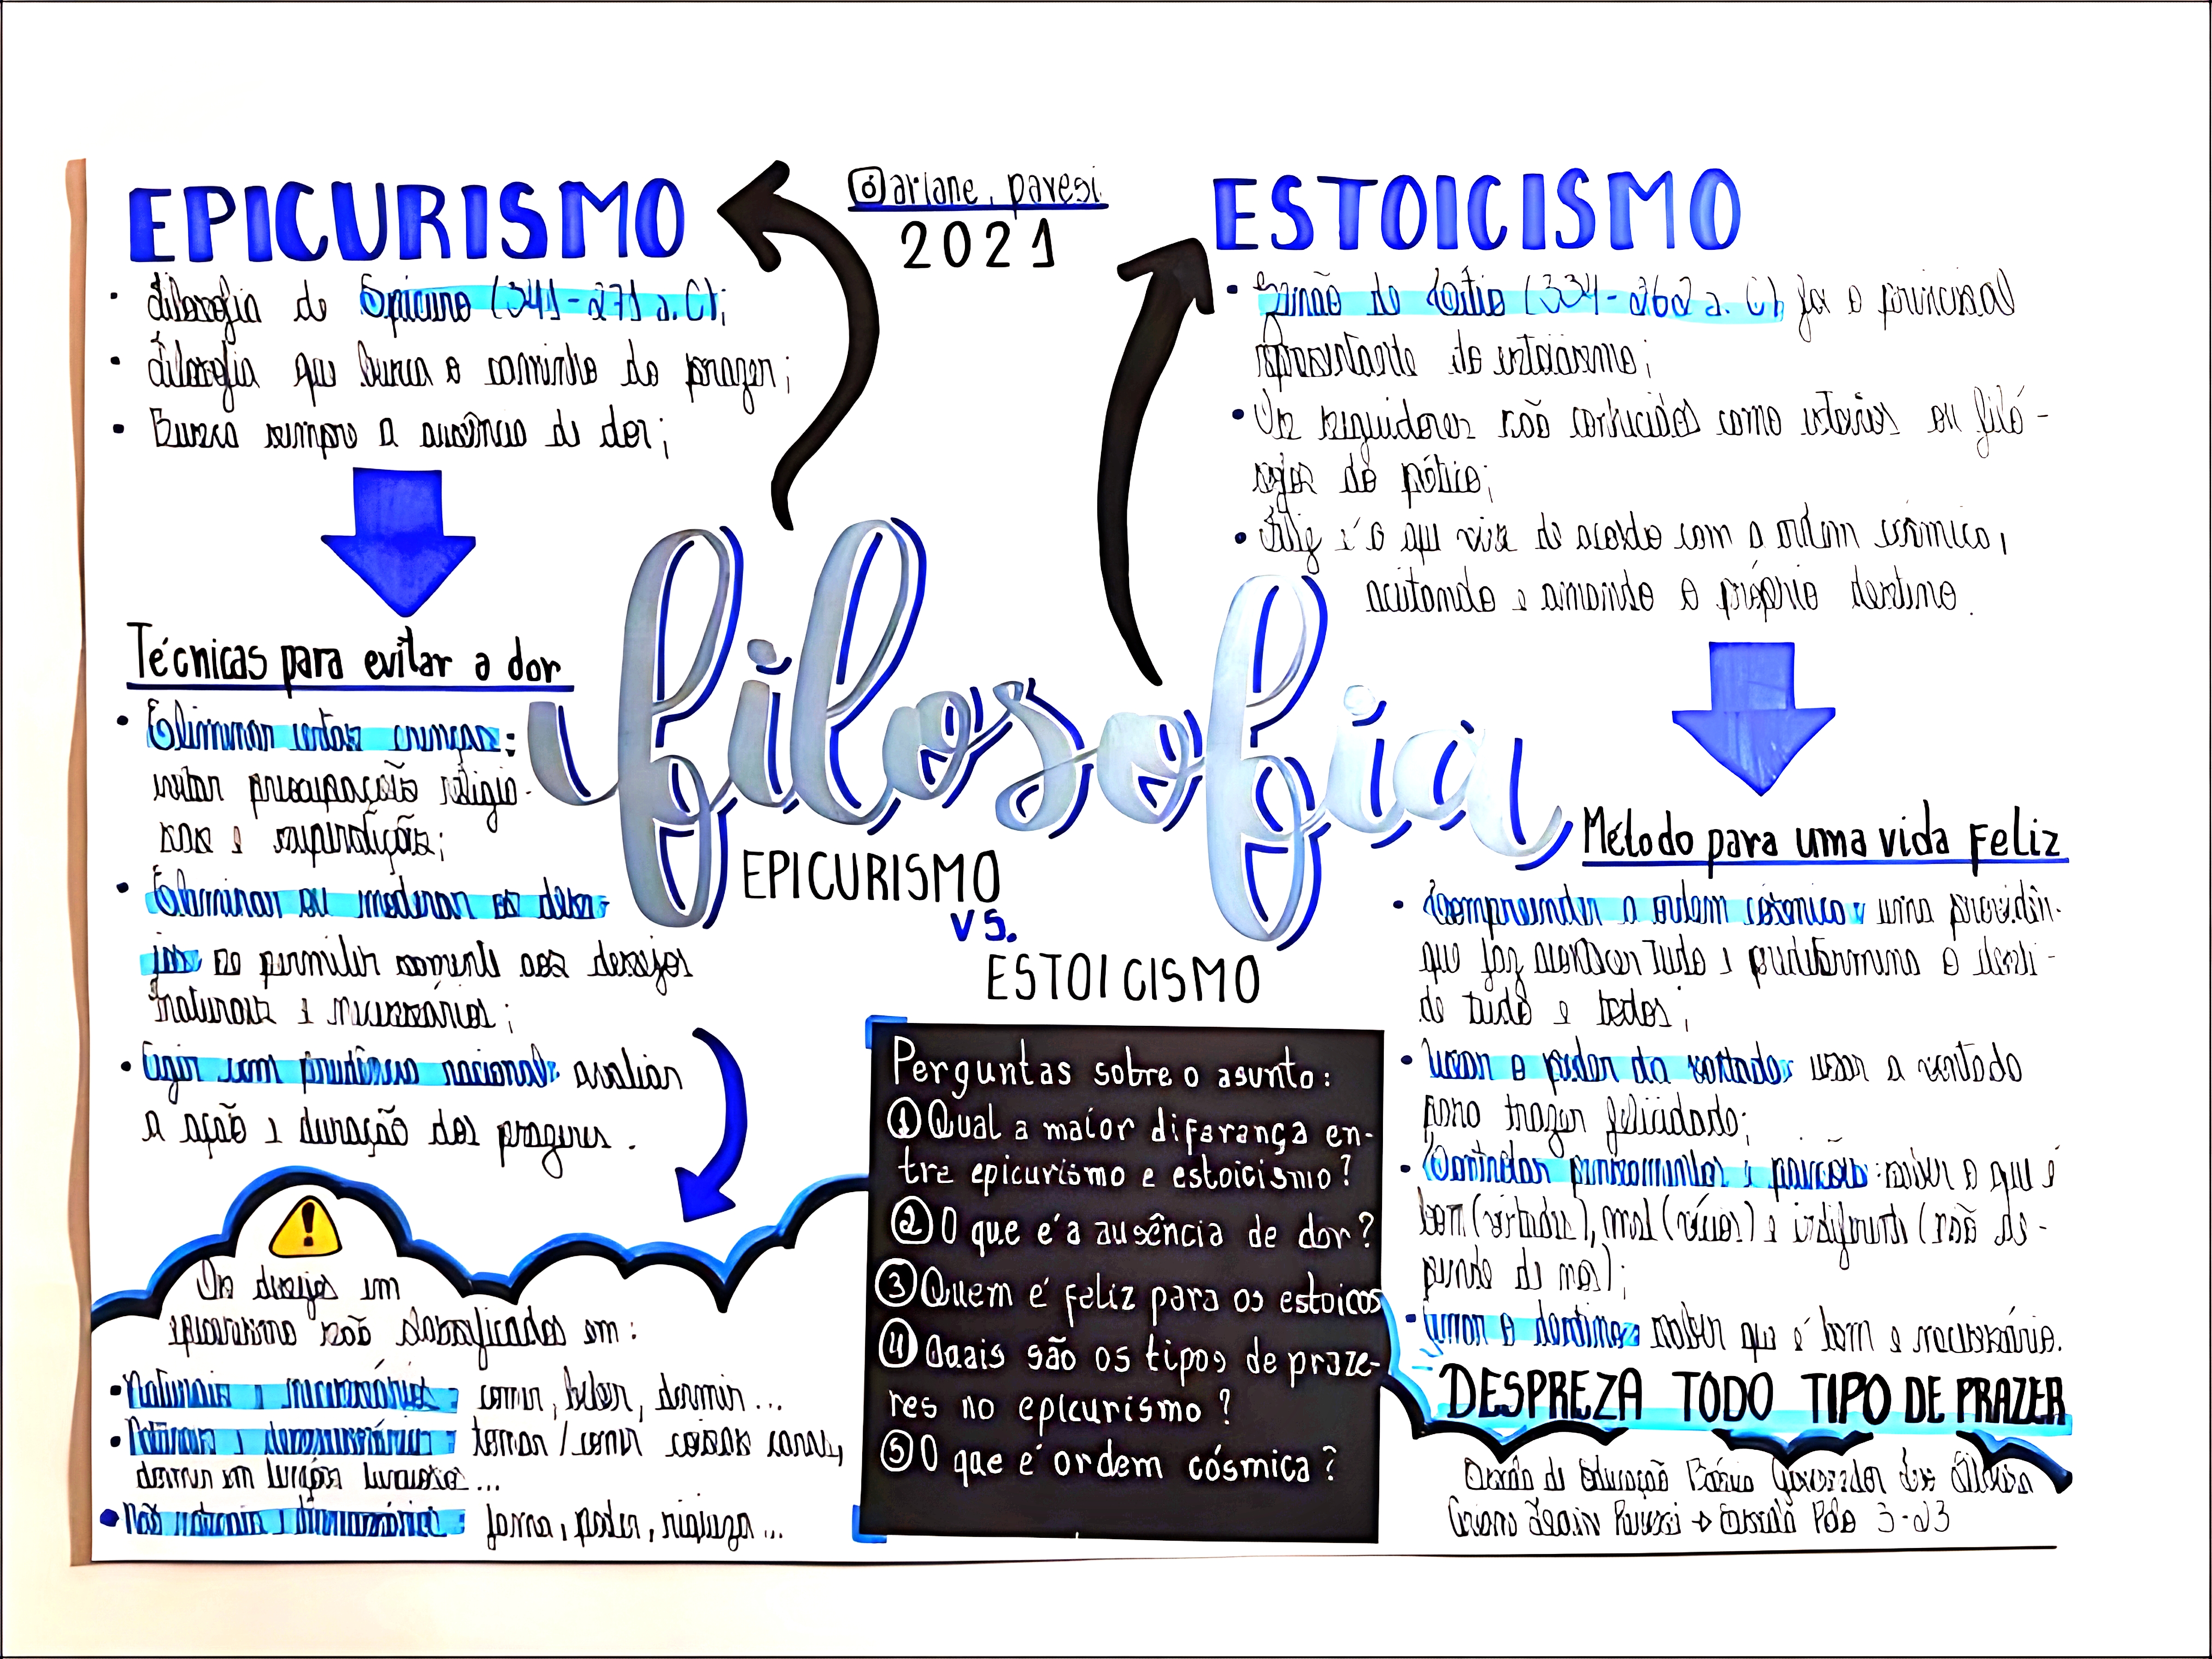 EPICURISMO
• Filosofia de Epicuro (341-271 a.C);
• Filosofia que busca o caminho do prazer;
• Busca sempre a ausência de dor;
Técnicas para evitar a dor
• Eliminar certas crenças:
evitar preocupações religio-
sas e superstições;
• Eliminar ou moderar os dese-
jos se permitir somente aos desejos
naturais e necessários;
• Agir com prudência racional: avaliar
a ação e duração dos prazeres.
Os desejos em
epicurismo são classificados em:
• Naturais e necessários: comer, beber, dormir...
• Naturais e desnecessários: tomar/comer coisas caras,
dormir em lugares luxuosos...
• Não naturais e desnecessários: fama, poder, riqueza...
ariane.pavesi
2021
filosofia
EPICURISMO
VS.
ESTOICISMO
Perguntas sobre o asunto:
① Qual a maior diferança en-
tre epicurismo e estoicismo?
② O que é a ausência de dor?
③ Quem é feliz para os estoicos
④ Quais são os tipos de praze-
res no epicurismo?
⑤ O que é ordem cósmica?
ESTOICISMO
• Zenão de Cítio (334-262 a.C) foi o principal
representante do estoicismo;
• Os seguidores são conhecidos como estoicos ou filó-
sofos do pórtico;
• Feliz é o que vive de acordo com a ordem cósmica,
aceitando e amando o próprio destino.
Método para uma vida Feliz
• Compreender a ordem cósmica: uma providên-
que faz acontecer tudo e predetermina o desti-
de tudo e todos;
• Usar o poder da vontade: usar a vontade
para trazer felicidade;
• Controlar pensamentos e paixões: saber o que é
bom (virtudes), mal (vícios) e indiferente (não de-
pende de nós);
• Amar o destino: saber que é bom e necessário.
DESPREZA TODO TIPO DE PRAZER
Escola de Educação Básica Governador
Pavesi → Escola Polo 3-23